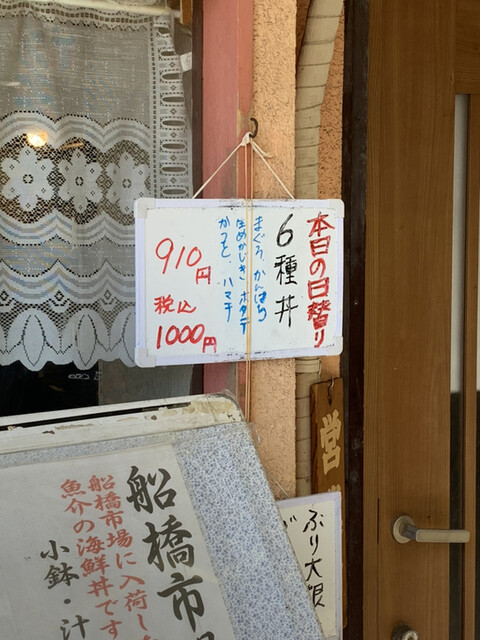 本日の日替り
6種丼
まぐろ、かんぱち
生めかじき ホタテ
かつを、ハマチ
910円
税込
1000円
営
ぶり大根
船橋市
船橋市場に入荷し
魚介の海鮮丼です
小鉢・汁